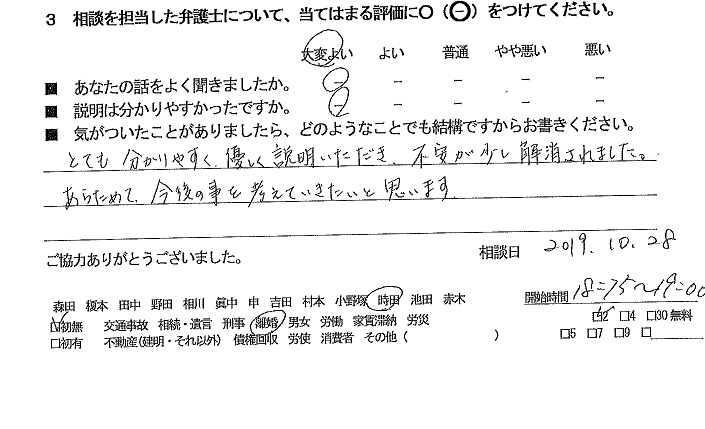 3 相談を担当した弁護士について、当てはまる評価に○(⊖)をつけてください。
大変よい よい 普通 やや悪い 悪い
■ あなたの話をよく聞きましたか。 － － － － －
■ 説明は分かりやすかったですか。 － － － － －
■ 気がついたことがありましたら、どのようなことでも結構ですからお書きください。
とても分かりやすく、優しく説明いただき、不安が少し解消されました。
あらためて、今後の事を考えていきたいと思います。
ご協力ありがとうございました。 相談日 2019.10.28
森田 榎本 田中 野田 相川 眞中 申 吉田 村本 小野塚 時田 池田 赤木 開始時間 18:15～19:00
☑初無 交通事故 相続・遺言 刑事 離婚 男女 労働 家賃滞納 労災 ☑2 □4 □30 無料
□初有 不動産(建明・それ以外) 債権回収 労使 消費者 その他( ) □5 □7 □9 □